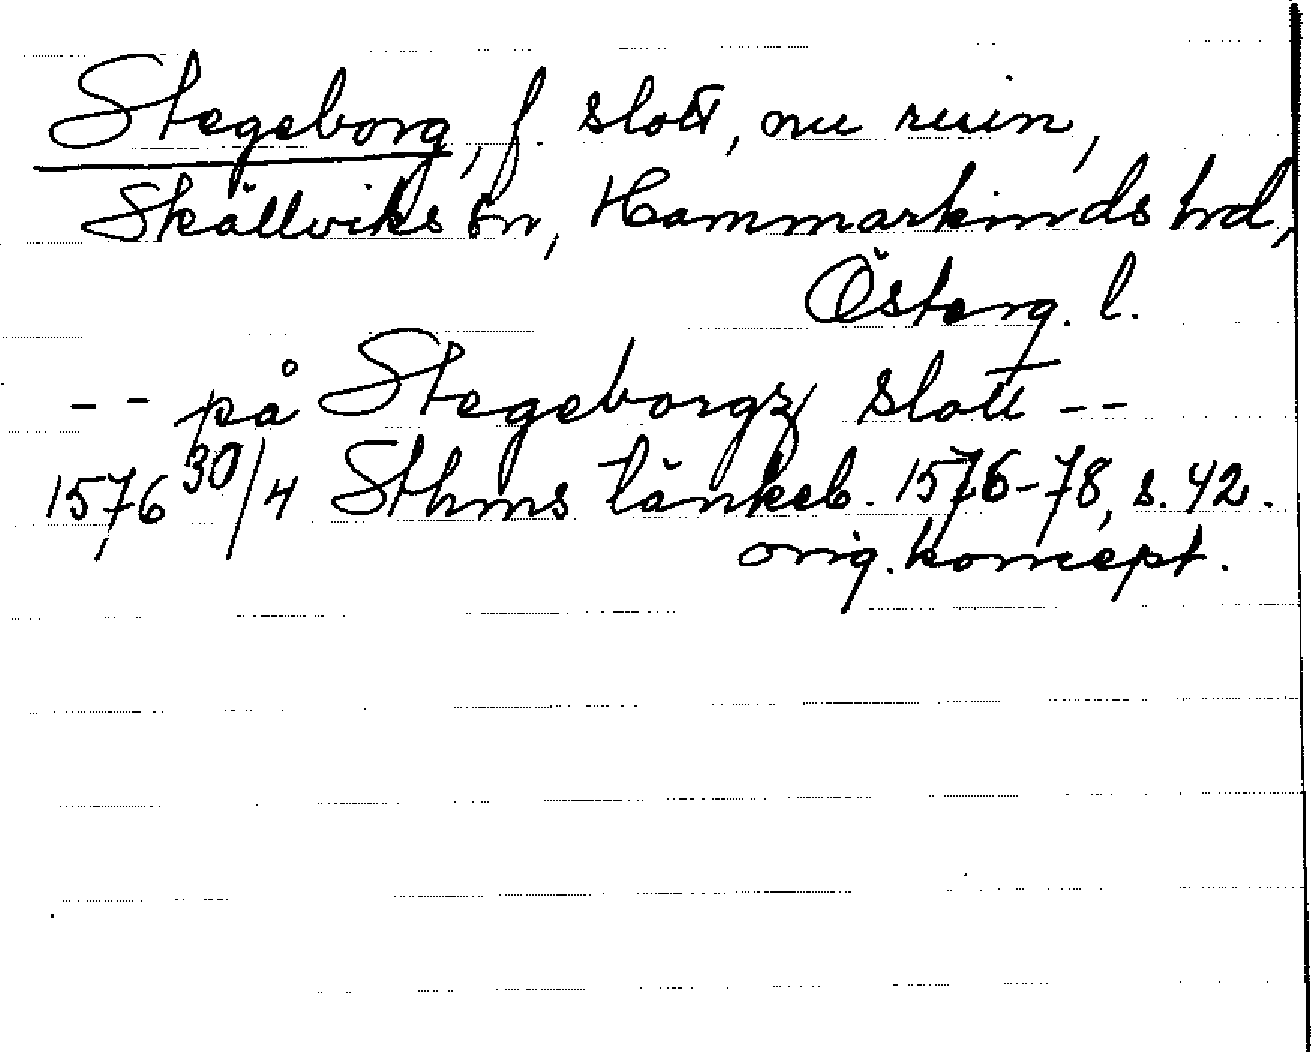 Stegeborg, f. slott, nu ruin,
Skällviks sn, Hammarkinds hd,
Österg. l.
-- på Stegeborgz slott --
1576 30/4 Sthms tänkeb. 1576-78, s. 42.
orig. koncept.